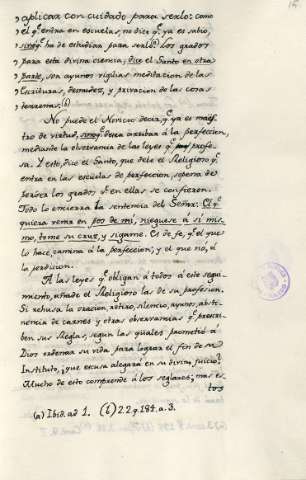 y aplicar con cuidado para serlo: como
el q.e entra en escuelas, no dice q.e ya es sabio,
sino q.e ha de estudiar para serlo. Los grados
para esta divina ciencia, dice el Santo en otra
parte, son ayunos vigilias meditacion de las
Escrituras, desnudez, y privacion de las cosas
terrenas. (b)
No puede el Novicio decir, q.e ya es maes
tro de virtud, sino q.e desea arribar à la perfeccion,
mediante la observancia de las leyes q.e profe
sa. Y esto, dice el Santo, que debe el Religioso q.e
entra en las escuelas de perfeccion, sopena de
perder los grados q.e en ellas se confieren.
Todo lo encierra la sentencia del Señor: El q.e
quiera venir en pos de mi, nieguese à si mis
mo, tome su cruz, y sigame. Es de fe, q.e el que
lo hace, camina à la perfeccion; y el que nó, à
la perdicion.
A las leyes q.e obligan à todos à este segui
miento, añade el Religioso las de su profesion.
Si rehusa la oracion, retiro, silencio, ayunos, abste
nencia de carnes y otras observancias q.e prescri
ben sus Reglas, segun las quales prometió à
Dios ordenar su vida para lograr el fin de su
Instituto, ¿que escusa alegará en su divino juicio?
Mucho de esto comprende à los seglares; mas es
tos
(a) Ibid. ad 1. (b) 2.2. q. 184. a. 3.